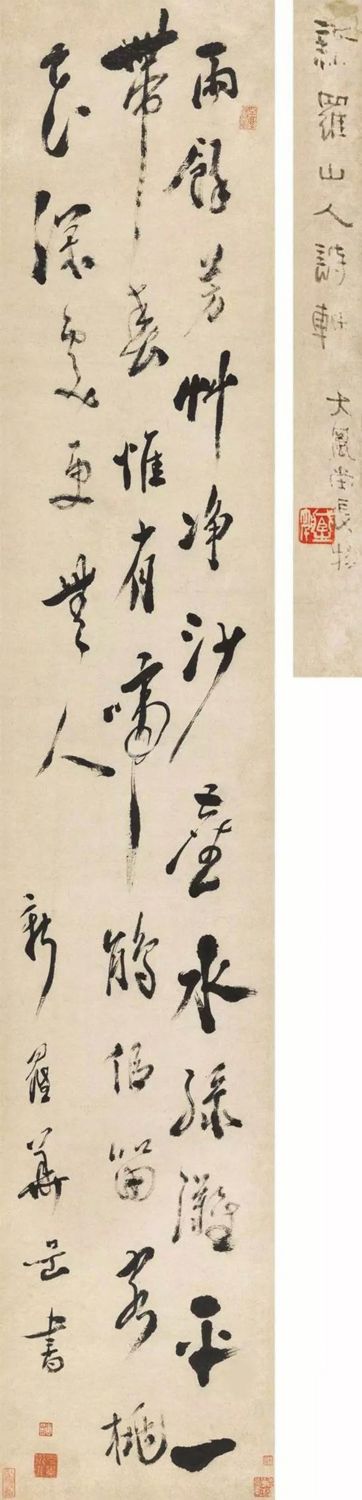 新羅山人詩軸 大風堂長物
雨餘芳艸净沙塵水綠灘平一
帶春惟有啼鵑似留客桃
花深處更無人
新羅華嵒書